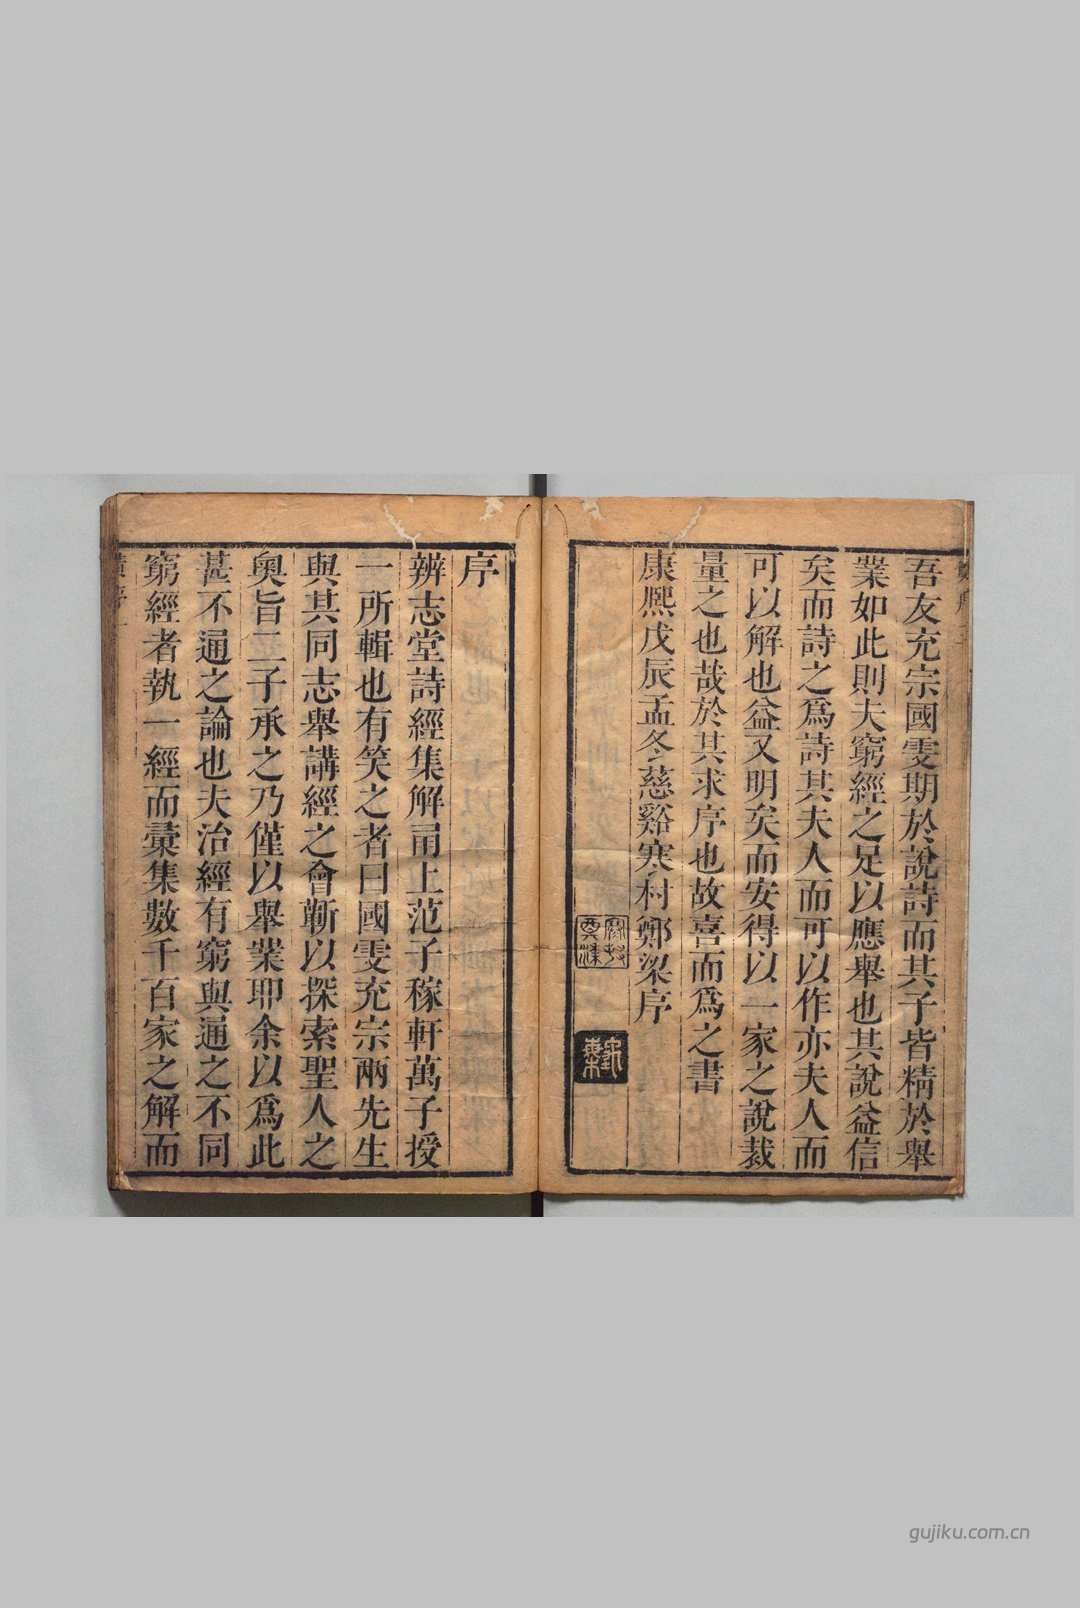 吾友充宗國雯期於說詩而其子皆精於舉
業如此則夫窮經之足以應舉也其說益信
矣而詩之爲詩其夫人而可以作亦夫人而
可以解也益又明矣而安得以一家之說裁
量之也哉於其求序也故喜而爲之書
康熙戊辰孟冬慈谿寒村鄭梁序
鄭梁
序
辨志堂詩經集解甬上范子稼軒萬子授
一所輯也有笑之者曰國雯充宗兩先生
與其同志舉講經之會蘄以探索聖人之
奧旨二子承之乃僅以舉業耶余以爲此
甚不通之論也夫治經有窮與通之不同
窮經者執一經而彚集數千百家之解而
gujiku.com.cn